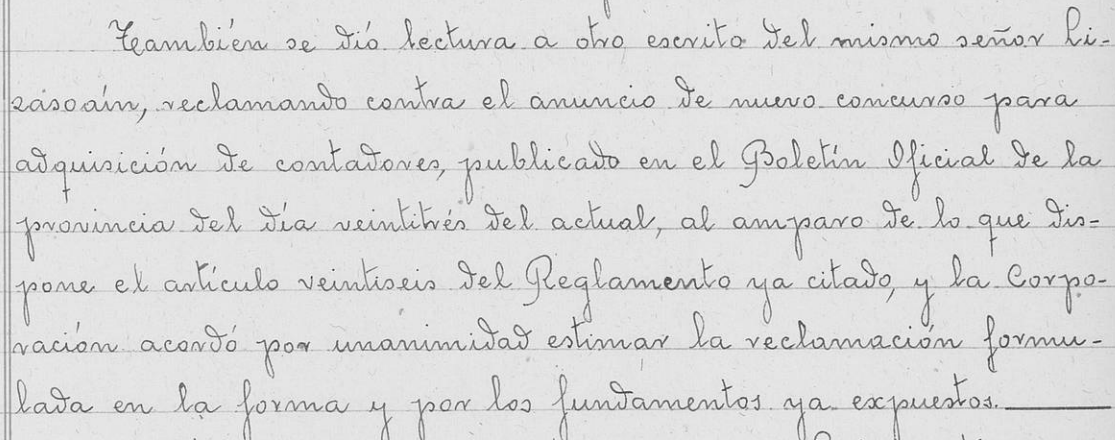 También se dió lectura a otro escrito del mismo señor Li-
zasoaín, reclamando contra el anuncio de nuevo concurso para
adquisición de contadores, publicado en el Boletín Oficial de la
provincia del día veintitrés del actual, al amparo de lo que dis=
pone el artículo veintiseis del Reglamento ya citado, y la Corpo-
ración acordó por unanimidad estimar la reclamación formu-
lada en la forma y por los fundamentos ya expuestos.